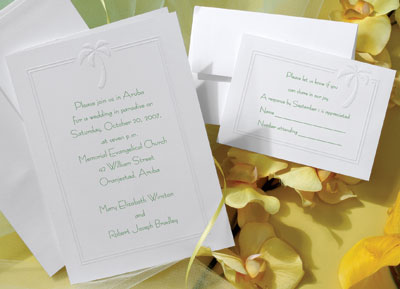 Please join us in Aruba
for a wedding in paradise on
Saturday, October 20, 2007,
at seven p.m.
Memorial Evangelical Church
40 William Street
Oranjestad, Aruba
Mary Elizabeth Winston
and
Robert Joseph Bradley
Please let us know if you
can share in our joy.
A response by September 1 is appreciated.
Name
Number attending